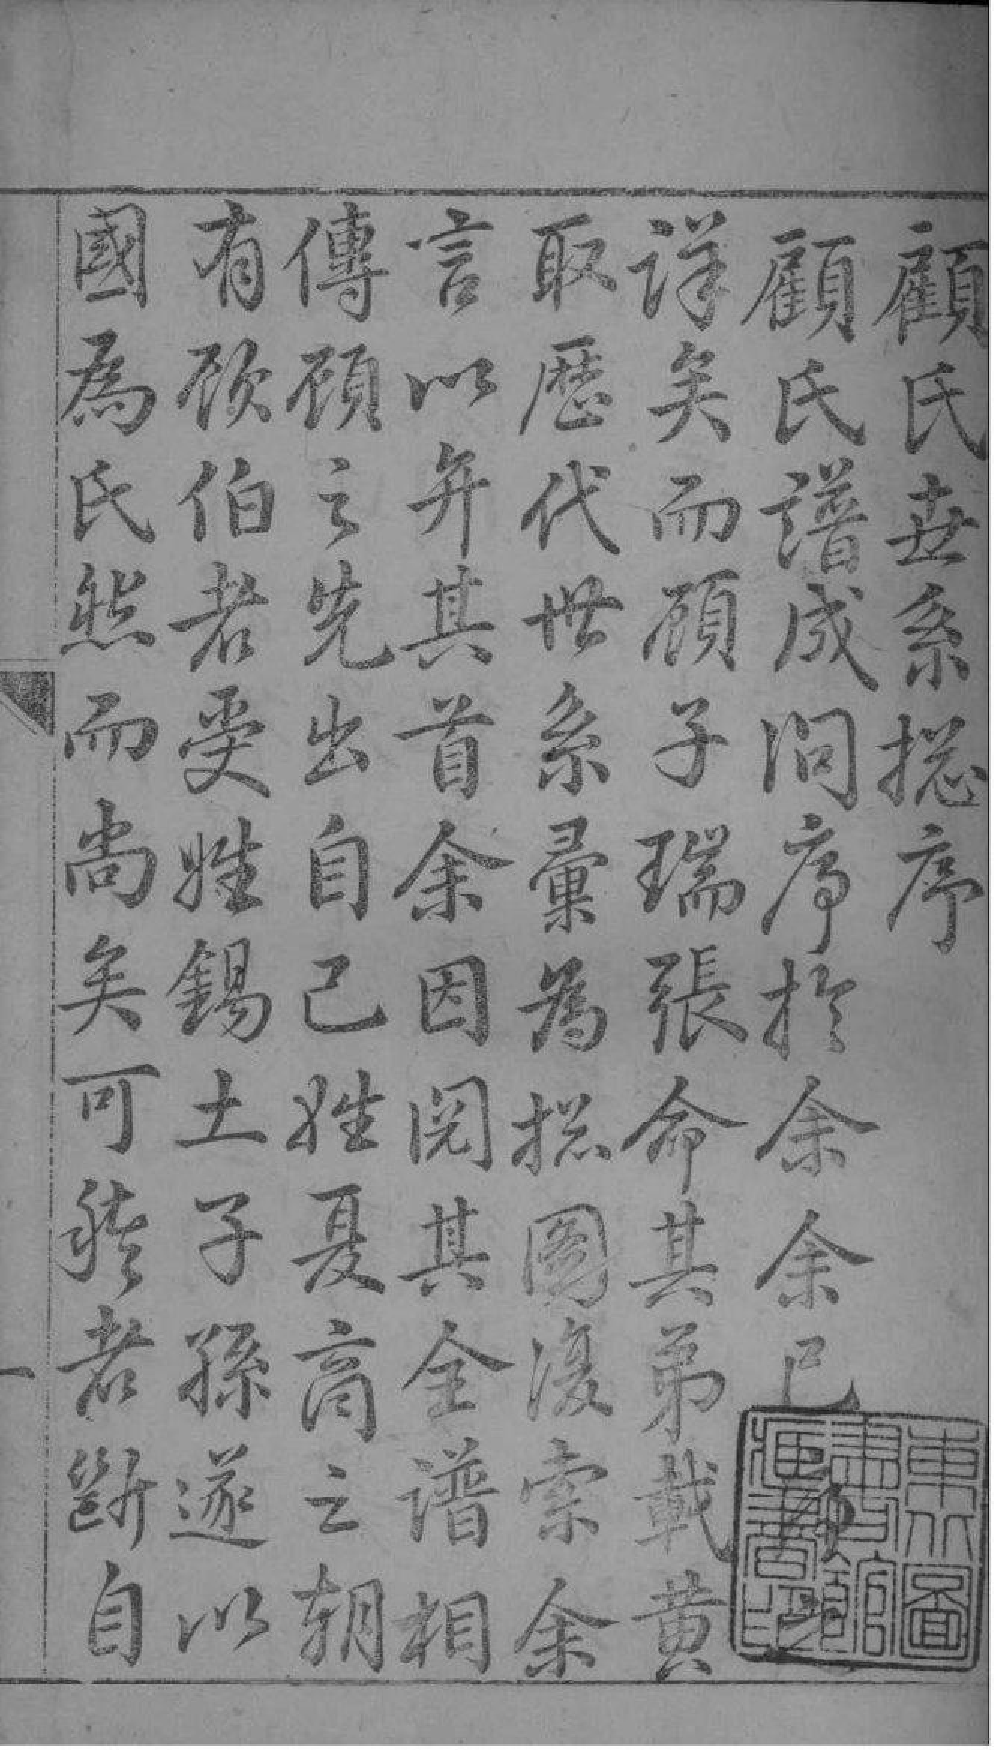 顧氏世系捴序
顧氏譜成問序於余余已
詳矣而顧子瑞張命其弟載黄
取歷代世系彙為捴圖復索余
言以弁其首余因閱其全譜相
傳顧之先出自己姓夏商之朝
有顧伯者受姓錫土子孫遂以
國為氏然而尚矣可稽者斷自
一
東北圖
書館